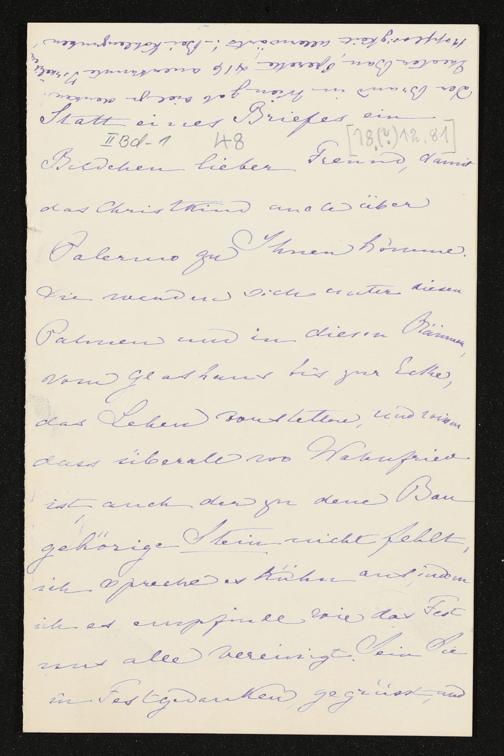 Der Brand in Wien gab viel zu denken
Theater Bau, Operette, alles
Kopflosigkeit allerwärts! Bei
Statt eines Briefes ein
II Bd-1 48 [18.(?)12.81]
Bildchen lieber Freund, damit
das Christkind auch über
Palermo zu Ihnen komme.
Sie werden sich unter diesen
Palmen und in diesen Räumen,
vom Glashaus bis zur Ecke,
das Leben vorstellen, und wissen
dass überall wo Wahnfried
ist, auch der zu dene Bau
gehörige Stein nicht fehlt,
ich spreche es kühn aus, indem
ich es empfinde wie das Fest
uns alle vereinigt. Sein Sie
in Festgedanken, gegrüsst, und